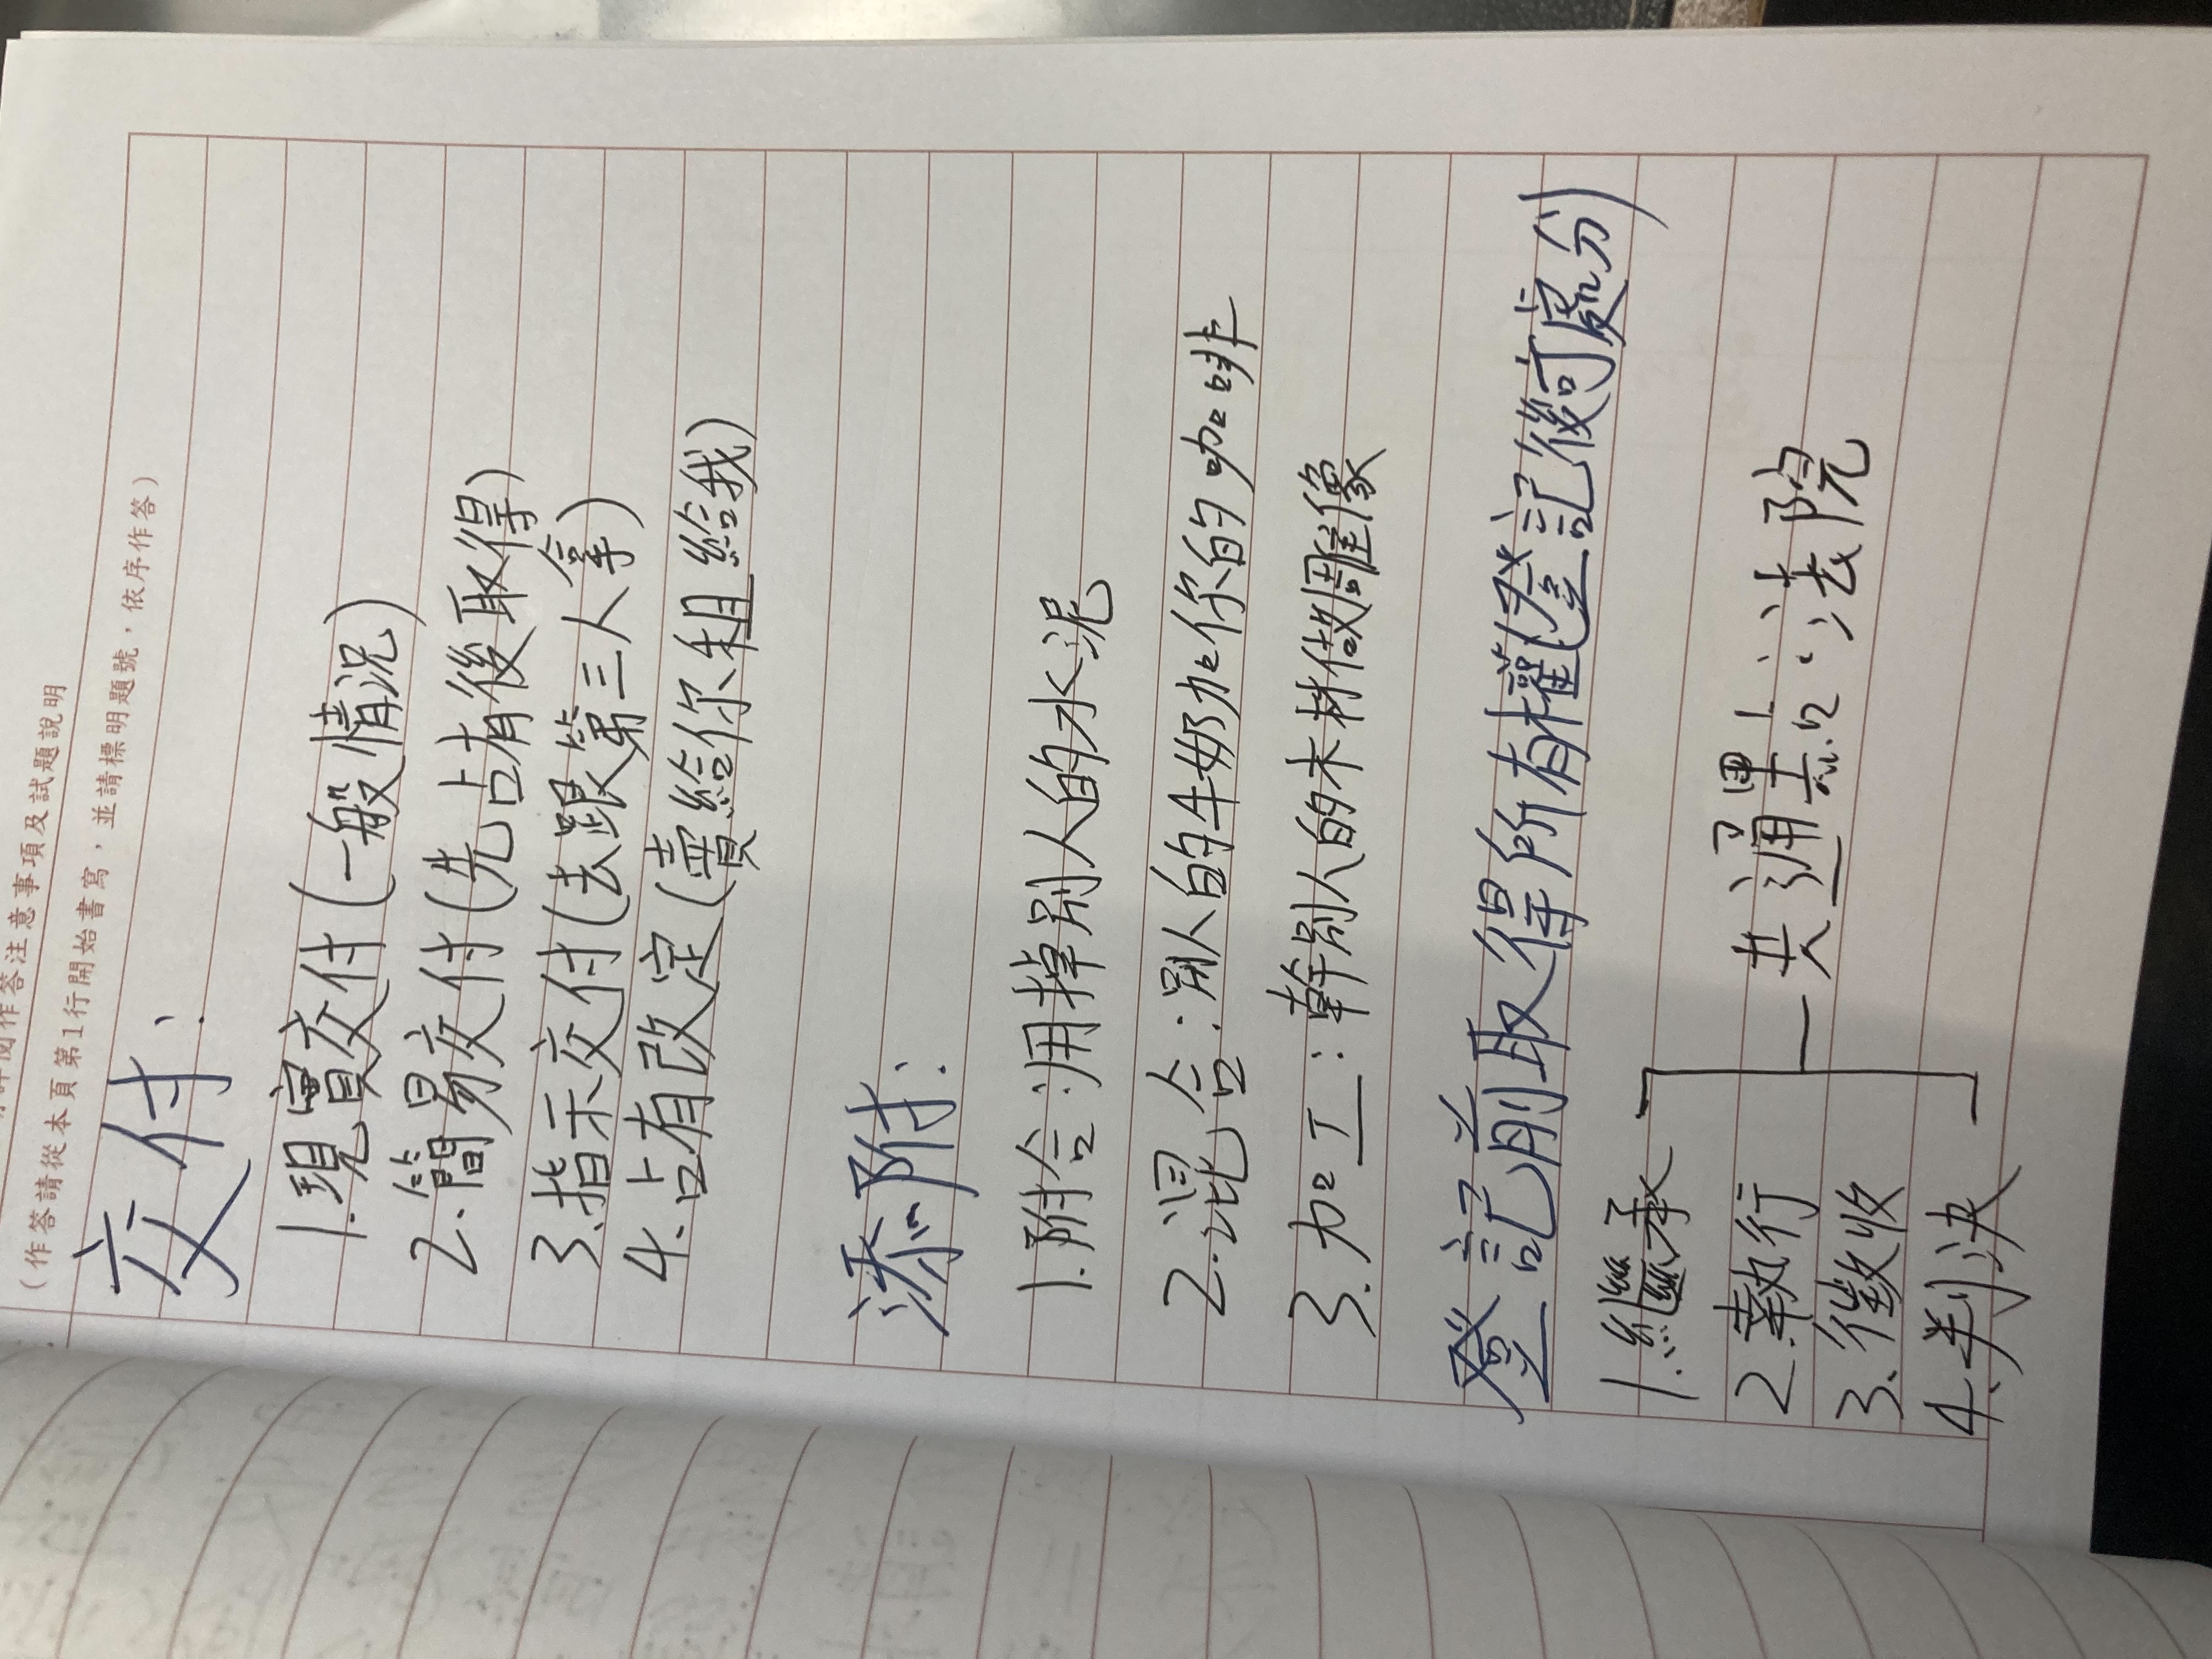 作答注意事項及試題說明
(作答請從本頁第1行開始書寫，並請標明題號，依序作答)
交付：
1.現實交付(一般情況)
2.簡易交付(先占有後取得)
3.指示交付(去跟第三人拿)
4.占有改定(賣給你租給我)
添附：
1.附合:用掉別人的水泥
2.混合:別人的牛奶加你的咖啡
3.加工:幹別人的木材做雕像
登記前取得所有權(登記後可處分)
1.繼承
2.執行
3.徵收
4.判決
共通點:上法院